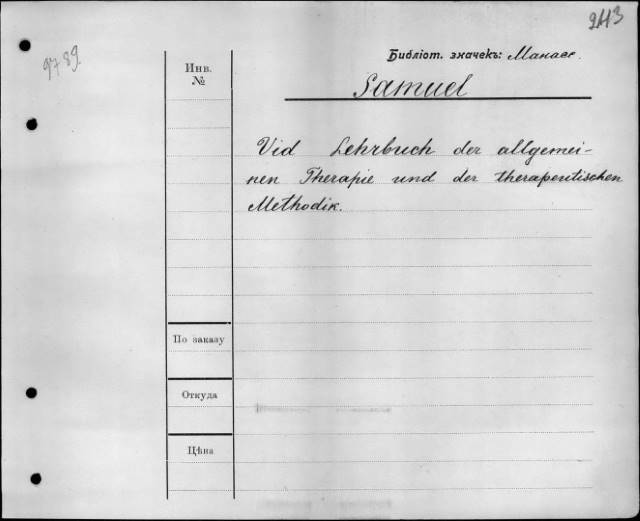 2413
9789
Инв.
№
Библіот. значекъ: Манасс.
Samuel
Vid Lehrbuch der allgemei-
nen Therapie und der therapeutischen
Methodik.
По заказу
Откуда
Цѣна